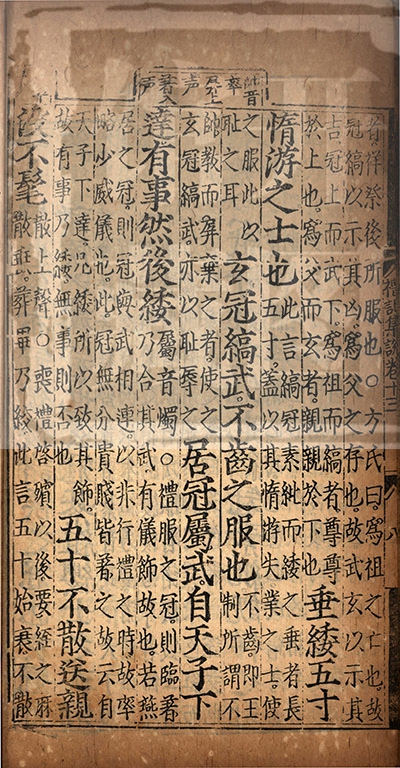 帥音
率
屏上
声
著入
声
者。祥祭後所服也。○方氏曰。爲祖之亡也。故
冠縞以示其凶。爲父之存也。故武玄以示其
吉冠上而武下。爲祖而縞者尊尊
於上也。爲父而玄者。親親於下也
垂緌五寸
惰游之士也
此言縞冠素紕而緌之垂者長
五寸。蓋以其惰游失業之士。使
之服此以
恥之耳
玄冠縞武。不齒之服也
不齒。即王
制所謂不
帥教而屏棄之者。使之
玄冠縞武。亦以恥辱之
居冠屬武。自天子下
達有事然後緌
屬音燭○禮服之冠。則臨著
乃合其武有儀飾故也。若燕
居之冠。則冠與武相連。以非行禮之時。故率
略少威儀也。此冠無分貴賤皆著之。故云自
天子下達。凡緌所以致其飾。
故有事乃緌。無事則否也
五十不散送。親
沒不髦
散上聲○喪禮啓殯以後。要絰之麻
散垂。葬畢乃絞。此言五十始衰不散
禮記集說卷十三
八